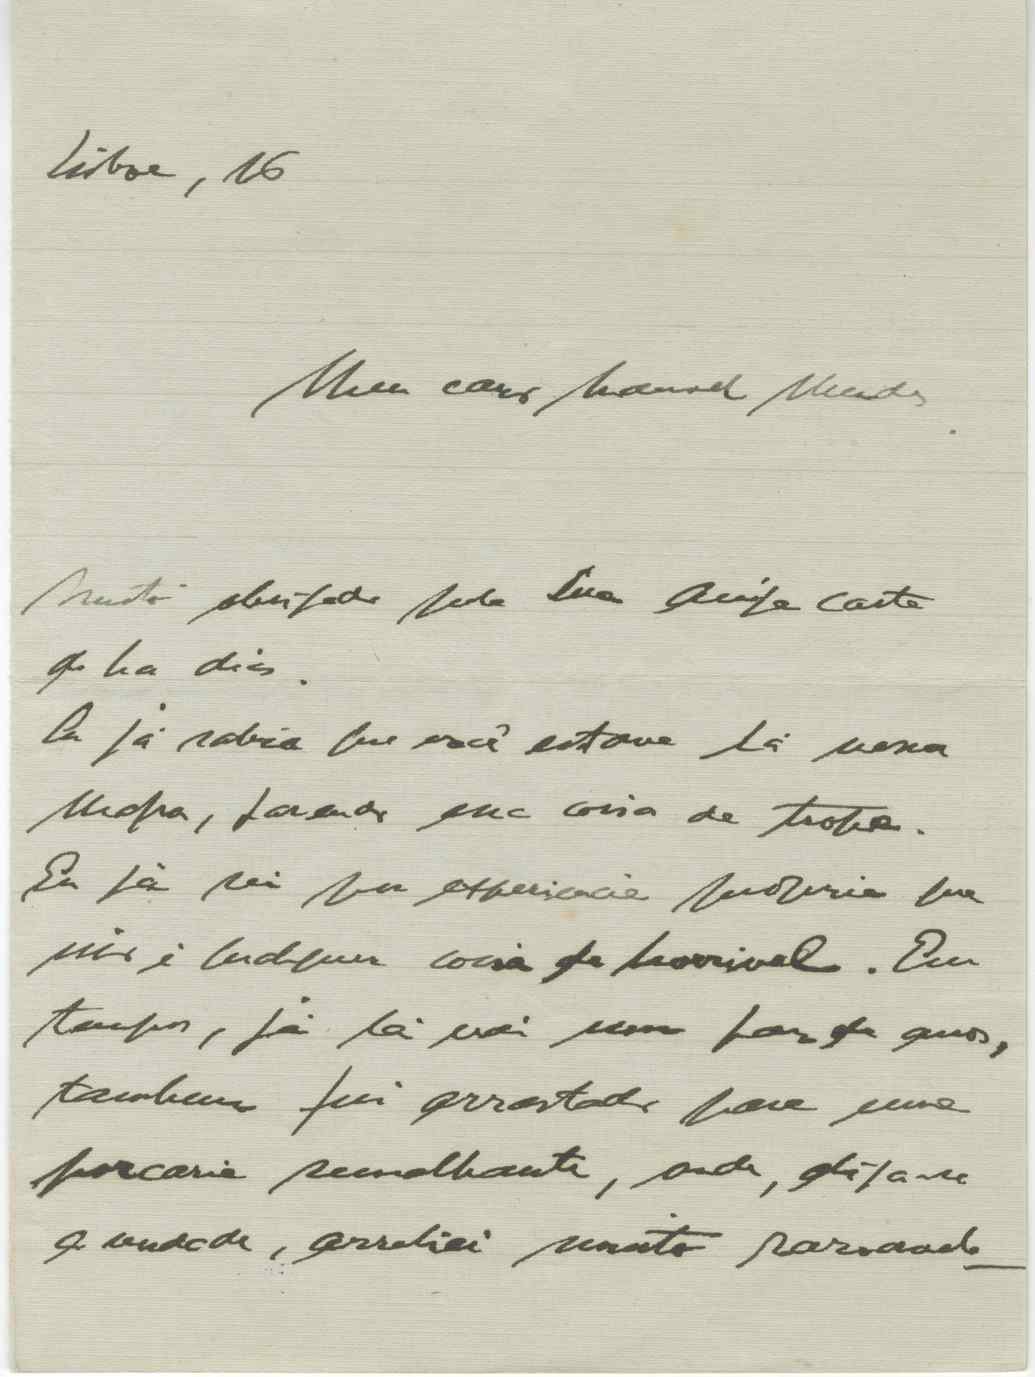 Lisboa, 16
Meu caro Manuel Mendes.
Muito obrigado pela Sua Amiga Carta
de ha dias.
Eu já sabia que você estava lá nessa
Mafra, fazendo essa coisa de tropa.
Eu já sei por experiencia propria que
isso é qualquer coisa de horrivel. Em
tempos, já lá vai um par de anos,
tambem fui arrastado para uma
porcaria semelhante, onde, diga-se
a verdade, arreliei muito